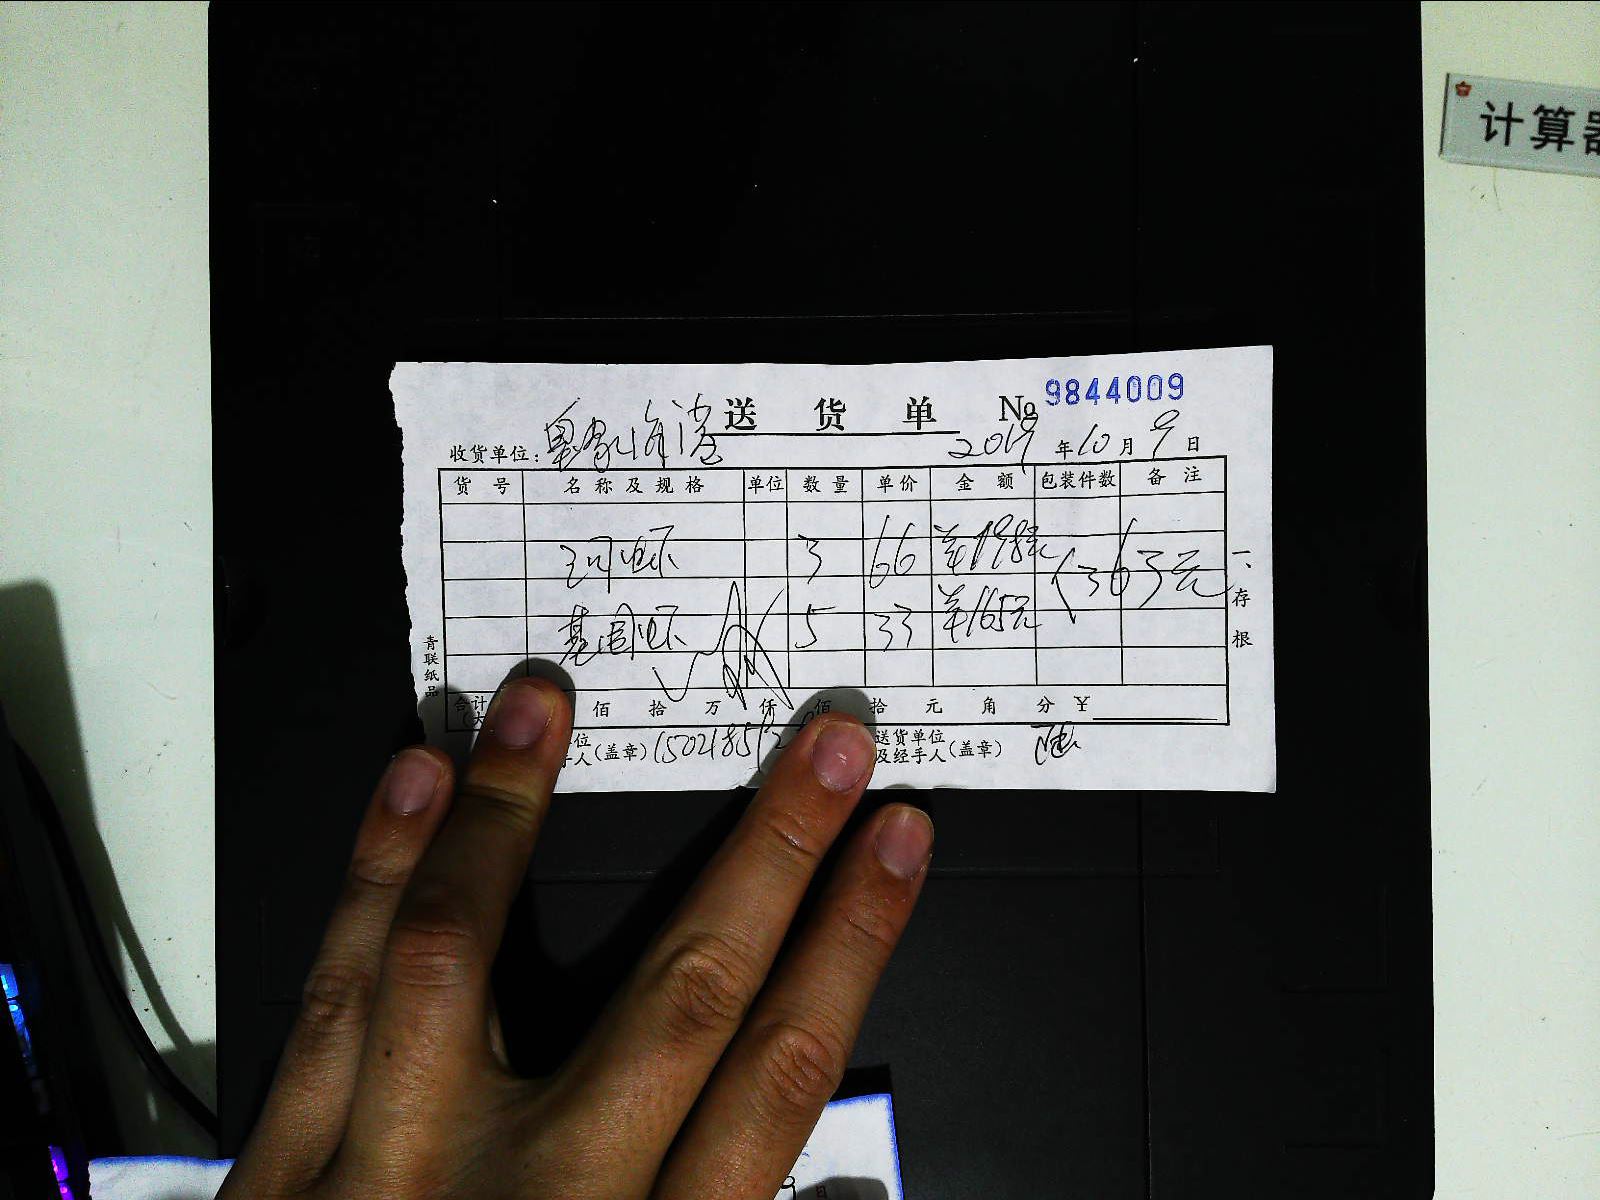 计算器
送货单 № 9844009
收货单位: 2019年10月9日
货号 名称及规格 单位 数量 单价 金额 包装件数 备注
3 66 198元 (363元
基围虾 5 33 165元
合计 佰 拾 万 仟 佰 拾 元 角 分 ¥
位 (盖章) 送货单位
手人 及经手人 (盖章)
一、存根
青联纸品
9日